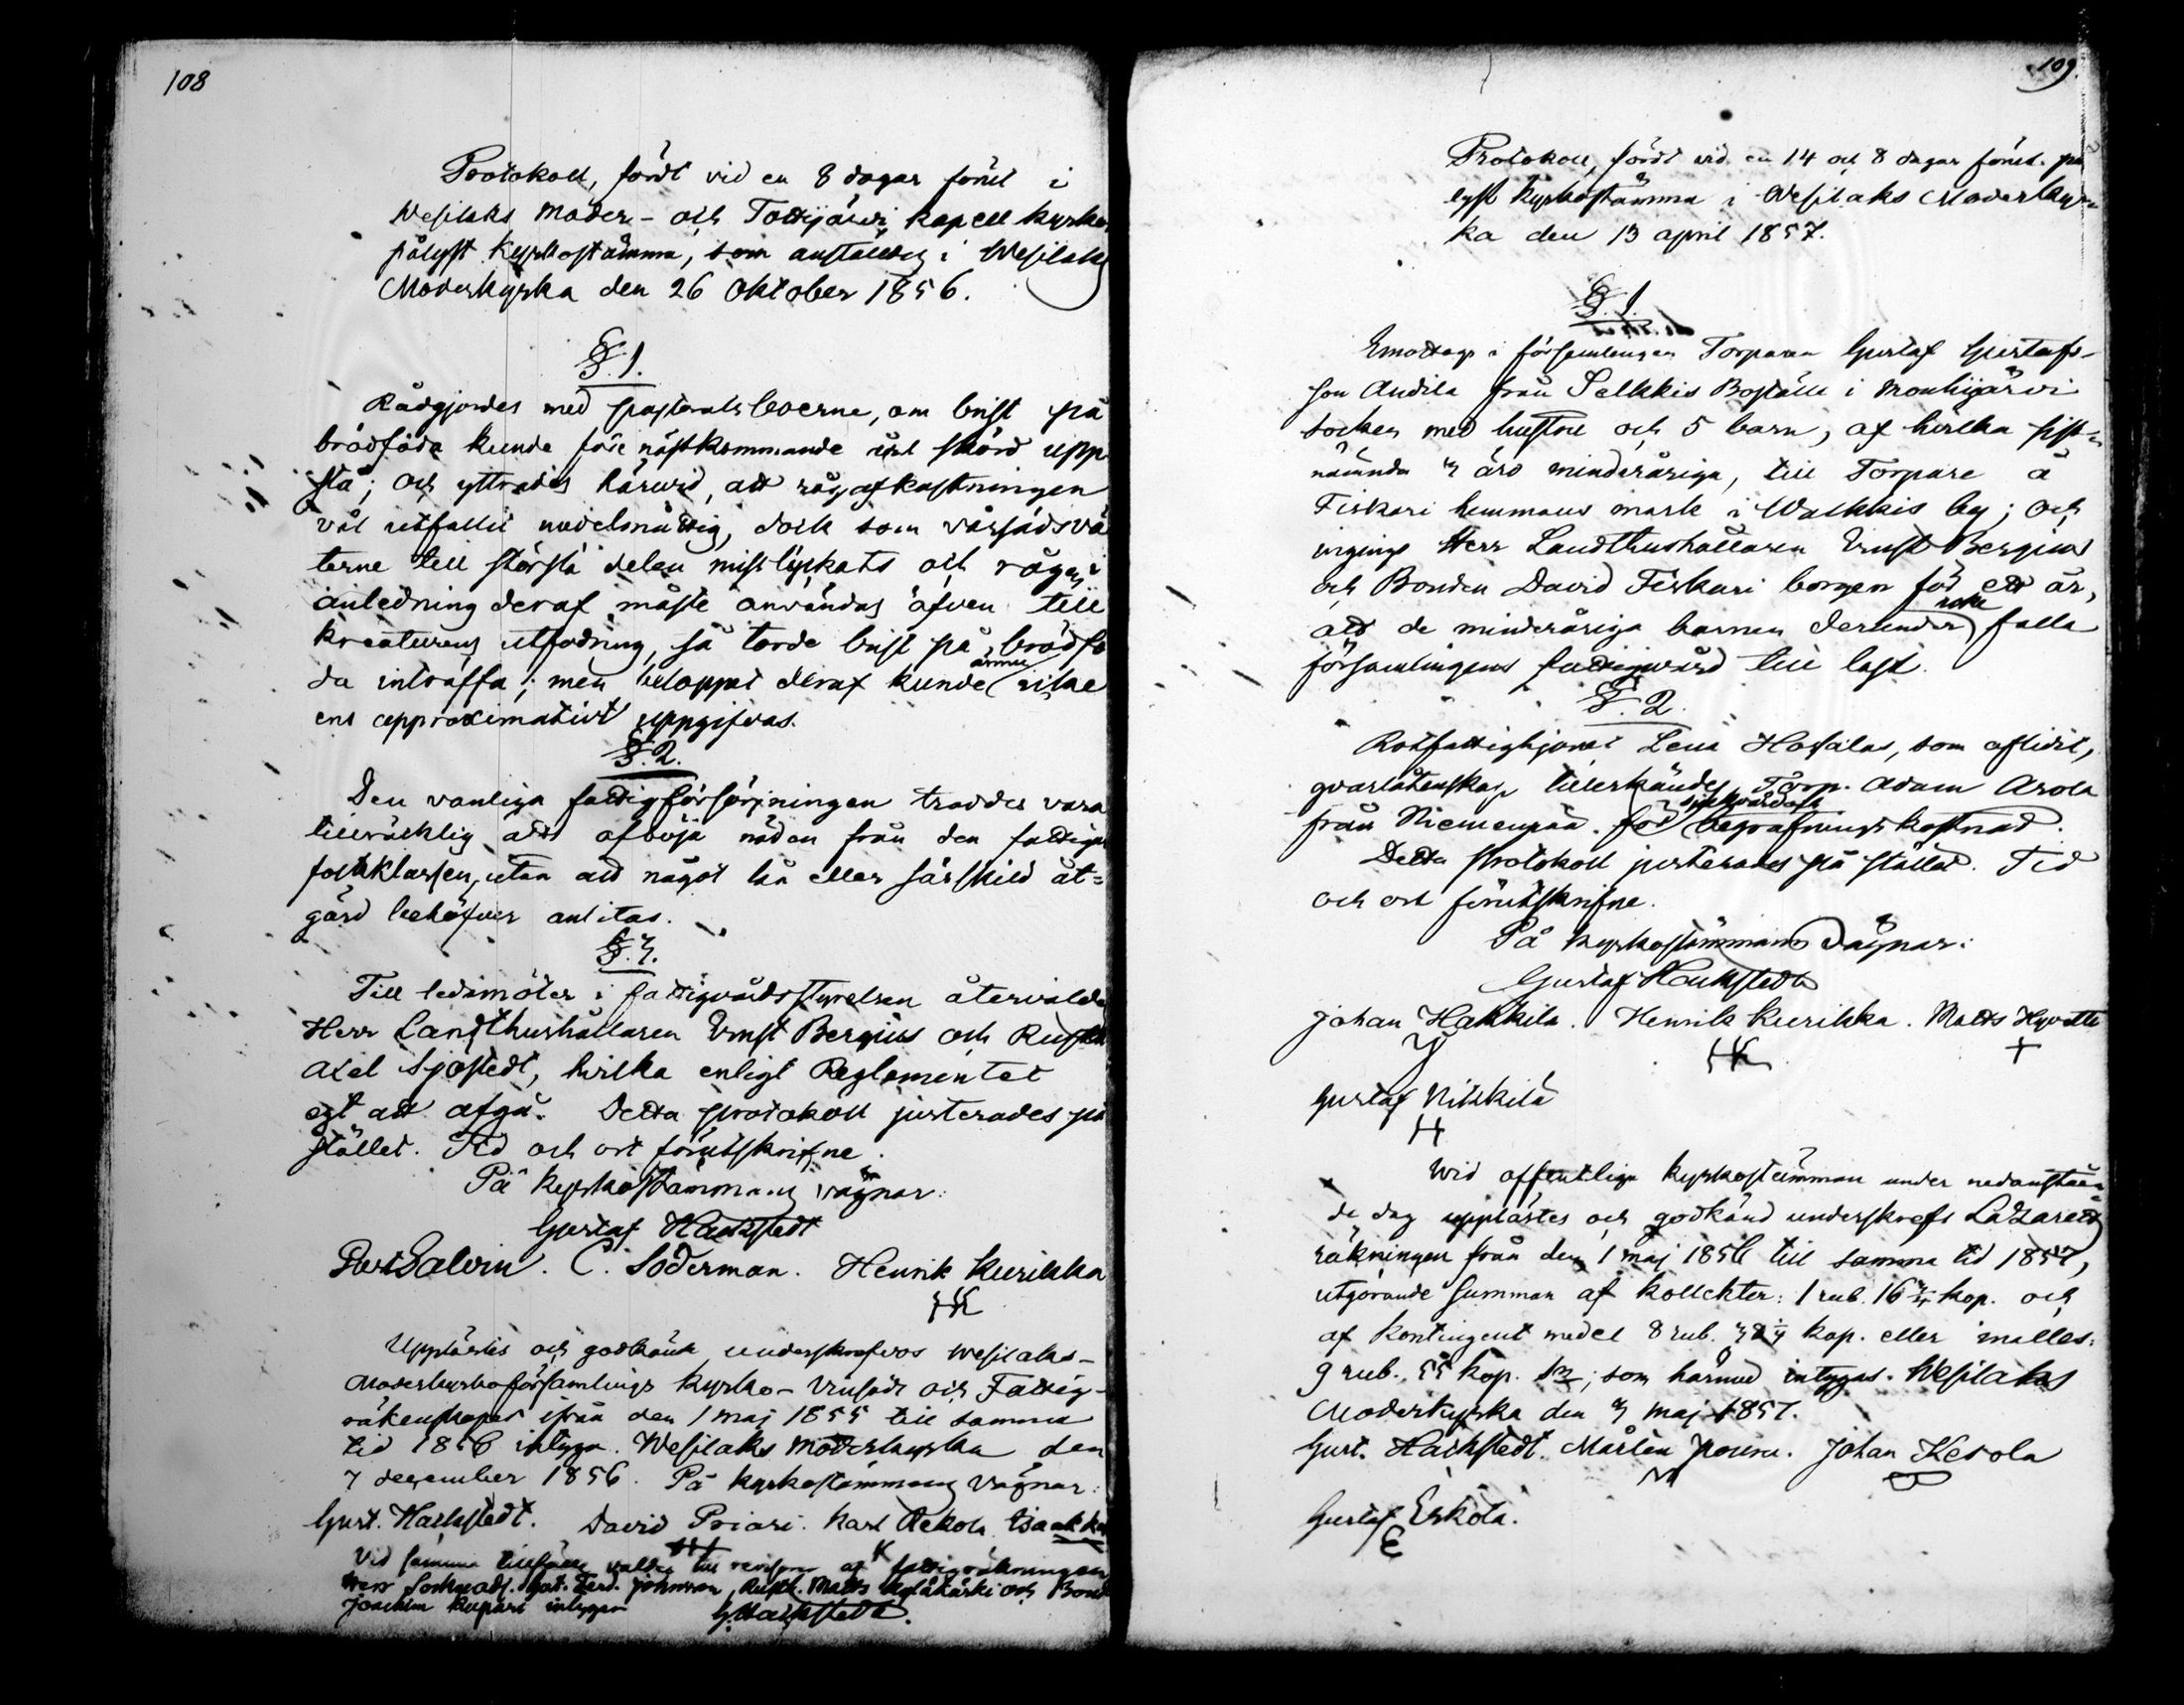 108
Protokoll, fördt vid en 8 dagar förut i
Wesilaks Moder- och Tottijärvi kapell kyrkor
pålyst Kyrkostämma, som anstäldes i Wesilaks
Moderkyrka den 26 Oktober 1856.
§. 1.
Rådgjordes med pastoratsboerne, om brist på
brödföda kunde före nästkommande års skörd upp
stå; och yttrades härvid, att rågafkastningen
väl utfallit medelmåttig, dock som vårsädsvä
terne till största delen misslyckats och rågen i
anledning deraf måste användas äfven till
kreaturens utfodring, så torde brist på brödfö
da inträffa; men beloppet deraf kunde ännu icke
ens approximativt uppgifvas.
§. 2.
Den vanliga fattigförsörjningen troddes vara
tillräcklig att afböja nöden från den fattigare
folkklassen, utan att något lån eller särskild åt=
gärd behöfver anlitas.
§. 3.
Till ledamöter i fattigvårdsstyrelsen återvaldes
Herr Landthushållaren Ernst Bergius och Rusth
Axel Sjöstedt, hvilka enligt Reglementet
egt att afgå. Detta protokoll justerades på
stället. Tid och ort förutskrifne.
På Kyrkostämmans vägnar:
Gustaf Hackstedt
C. Söderman. Henrik Kurikka
HK
Upplästes och godkänt underskrefvos Wesilaks-
Moderkyrkoförsamlings Kyrko- och Fattig-
räkenskaper ifrån den 1 maj 1855 till samma
tid 1856 intyga. Wesilaks Moderkyrka den
7 december 1856. På kyrkostämmans vägnar:
Gust. Hackstedt. David Priari. Karl Isaak
Vid samma tillfälle valdes till revisorer af fattigräkningen
Herr Ferd. Johnsson, Rusth. Matts och Bond
Joachim Kupari intygar G. Hackstedt.
109.
Protokoll, fördt vid en 14 och 8 dagar förut på
lyst Kyrkostämma i Wesilaks Moderkyr=
ka den 13 april 1857.
§. 1.
Emottogs i församlingen Torparen Gustaf Gustafs-
son Andila från Selkkis Boställe i Mouhijärvi
socken med hustru och 5 barn, af hvilka sist=
nämnda 3 äro minderåriga, till Torpare å
Fiskari hemmans mark i Walkkis by; och
ingingo Herr Landthushållaren Ernst Bergius
och Bonden David Fiskari borgen för ett år,
att de minderåriga barnen derunder icke falla
församlingens fattigvård till last.
§. 2.
Rotfattighjonet Lena Hosialas, som aflidit,
qvarlåtenskap tillerkändes Torp. Adam Arola
från Niemenpää. för sjukvård och begrafningskostnad.
Detta protokoll justerades på stället. Tid
och ort förutskrifne.
På kyrkostämmans vägnar:
Gustaf Hackstedt
Johan Hakkila. Henrik Kurikka. Matts
HK +
Gustaf
Wid offentliga kyrkostämman under nedanståen
de dag upplästes och godkänd underskrefs Lazaretts
räkningen från den 1 maj 1856 till samma tid 1857,
utgörande Summan af kollekter: 1 rub. 16 kop. och
af kontingent medel 8 rub. kop. eller inalles:
9 rub. 55 kop. ; som härmed intygas. Wesilaks
Moderkyrka den 3 maj 1857.
Gust. Hackstedt. Mårten Johan Kesola
Gustaf Eskola.
E